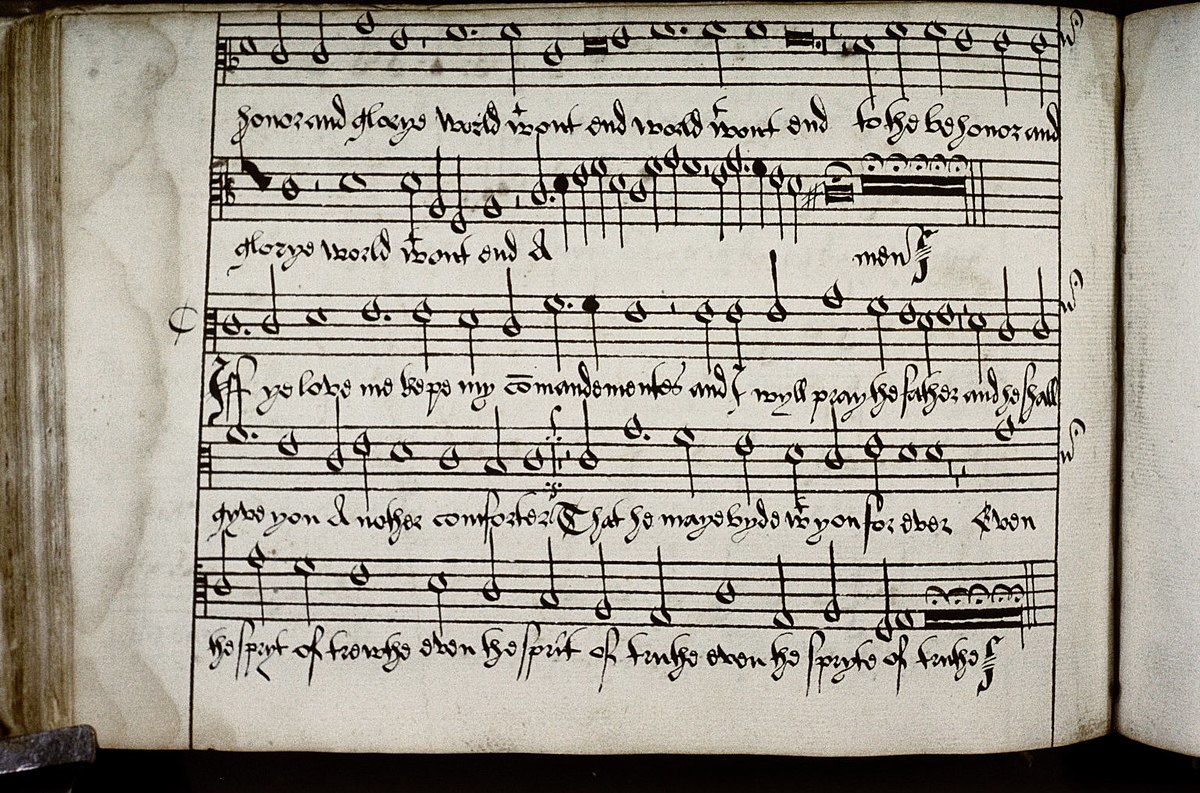 honor and glorye world wt out end world wt out end to the be honor and
glorye world wt out end A men
If ye love me kepe my comandementes and I wyll pray the father and he shall
gyve you A nother comforter That he maye byde wt you for ever Even
the spryt of trewthe even the sprit of truthe even the spryte of truthe